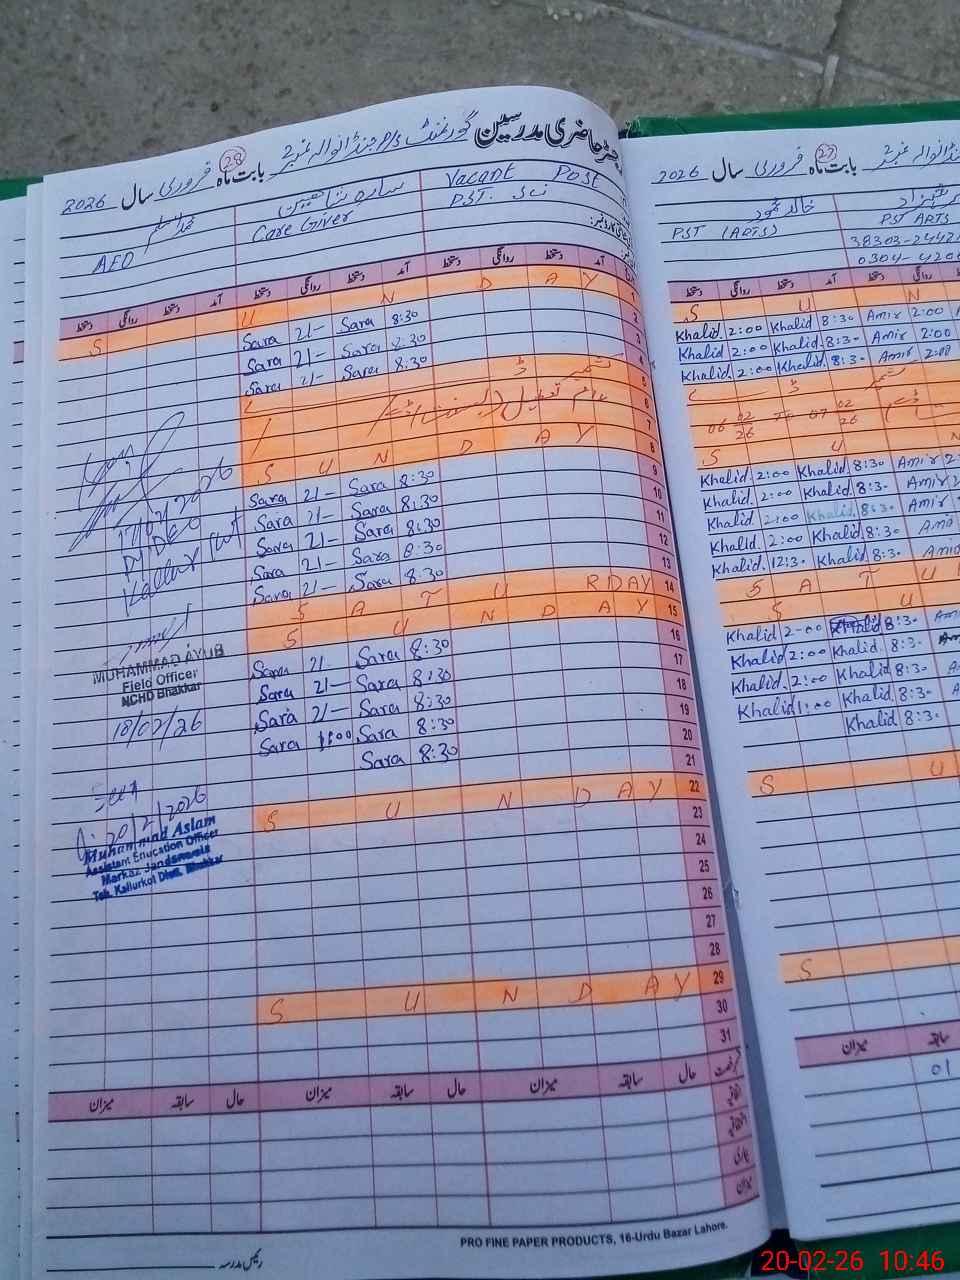 رجسٹر حاضری مدرسین گورنمنٹ P/S جنڈانوالہ نمبر 2 بابت ماہ فروری سال 2026
28
Vacant Post
PST. Sci
Care Giver
AEO
دستخط روانگی آمد دستخط روانگی آمد دستخط روانگی آمد
S U N D A Y 1
Sara 21- Sara 8:30 2
Sara 21- Sara 8:30 3
Sara 21- Sara 8:30 4
5
6
7
S U N D A Y 8
Sara 21- Sara 8:30 9
Sara 21- Sara 8:30 10
Sara 21- Sara 8:30 11
Sara 21- Sara 8:30 12
Sara 21- Sara 8:30 13
S A T U RDAY 14
S U N D A Y 15
Sara 21- Sara 8:30 16
Sara 21- Sara 8:30 17
Sara 21- Sara 8:30 18
Sara 1:00 Sara 8:30 19
Sara 8:30 20
21
S U N D A Y 22
23
24
25
26
27
28
S U N D A Y 29
30
31
میزان سابقہ حال میزان سابقہ حال میزان سابقہ حال
میزان
رئیس مدرسہ
PRO FINE PAPER PRODUCTS, 16-Urdu Bazar Lahore.
DDEO
Kallur Kot
MUHAMMAD AYUB
Field Officer
NCHD Bhakkar
18/02/26
Seen
20/2/2026
Muhammad Aslam
Assistant Education Officer
Markaz Jandanwala
Teh. Kallurkot Distt. Bhakkar
2026 سال فروری بابت ماہ 27
خالد محمود
PST (ARTS) PST ARTS
دستخط روانگی دستخط آمد دستخط روانگی
S U N
Khalid. 2:00 Khalid 8:30 Amir 2:00
Khalid. 2:00 Khalid. 8:30 Amir 2:00
Khalid. 2:00 Khalid. 8:30 Amir 2:00
06 02/26 To 07 02/26
S U N
Khalid. 2:00 Khalid 8:30 Amir
Khalid. 2:00 Khalid. 8:30 Amir
Khalid. 2:00 Khalid 8:30 Amir
Khalid. 2:00 Khalid. 8:30
Khalid. 12:3. Khalid 8:3.
S A T U
S U
Khalid 2-00 Khalid 8:30
Khalid 2:00 Khalid. 8:30
Khalid. 2:00 Khalid 8:30
Khalid 1:00 Khalid 8:30
Khalid 8:30
S U
S
میزان سابقہ
01
20-02-26 10:46